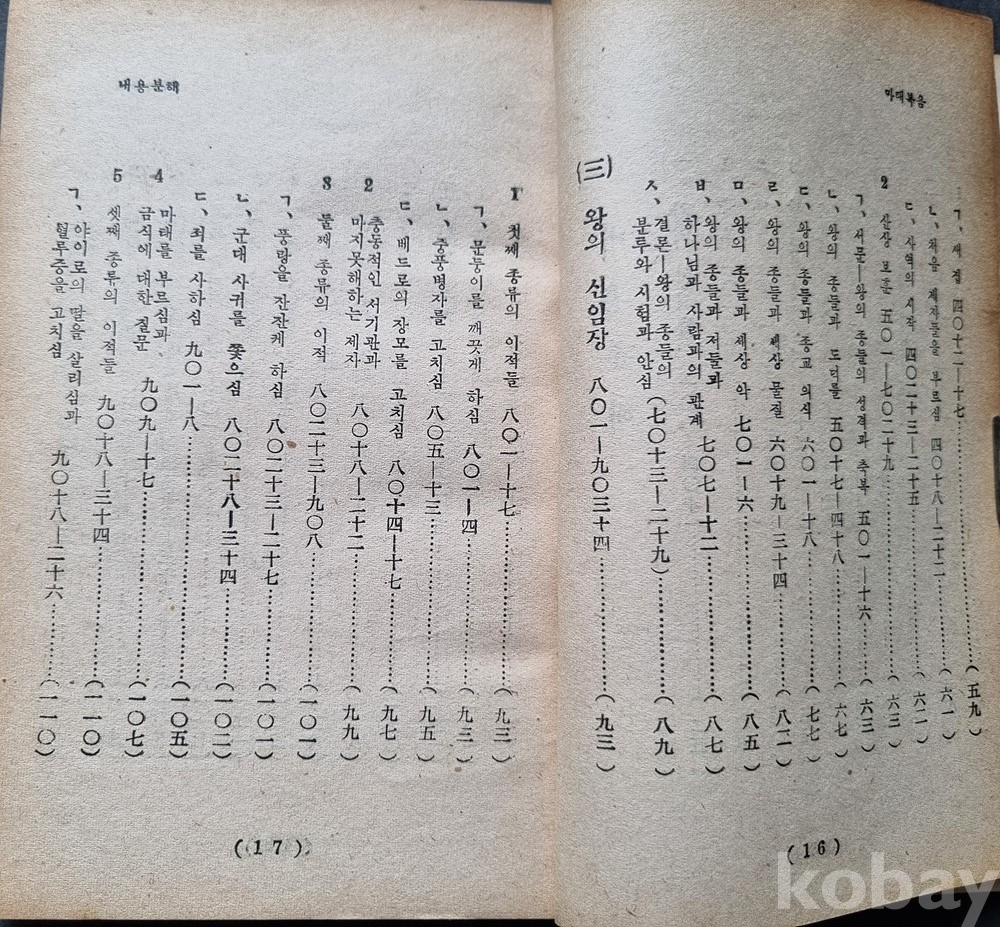 마태복음
ㄱ、새 집 四〇十二—十七………(五九)
ㄴ、처음 제자들을 부르심 四〇十八—二十二………(六一)
ㄷ、사역의 시작 四〇二十三—二十五………(六二)
2 산상 보훈 五〇一—七〇二十九………(六三)
ㄱ、서문—왕의 종들의 성격과 축복 五〇一—十六………(六三)
ㄴ、왕의 종들과 도덕률 五〇十七—四十八………(六七)
ㄷ、왕의 종들과 종교 의식 六〇一—十八………(七七)
ㄹ、왕의 종들과 세상 물질 六〇十九—三十四………(八二)
ㅁ、왕의 종들과 세상 악 七〇一—六………(八五)
ㅂ、왕의 종들과 저들과
하나님과 사람과의 관계 七〇七—十二………(八七)
ㅅ、결론—왕의 종들의
분투와 시험과 안심 (七〇十三—二十九)………(八九)
(三) 왕의 신임장 八〇一—九〇三十四………(九三)
(16)
내용분해
1 첫째 종류의 이적들 八〇一—十七………(九三)
ㄱ、문둥이를 깨끗게 하심 八〇一—四………(九三)
ㄴ、중풍병자를 고치심 八〇五—十三………(九五)
ㄷ、베드로의 장모를 고치심 八〇十四—十七………(九七)
2 충동적인 서기관과
마지못해하는 제자 八〇十八—二十二………(九九)
3 둘째 종류의 이적 八〇二十三—九〇八………(一〇一)
ㄱ、풍랑을 잔잔케 하심 八〇二十三—二十七………(一〇一)
ㄴ、군대 사귀를 쫓으심 八〇二十八—三十四………(一〇二)
ㄷ、죄를 사하심 九〇一—八………(一〇五)
4 마태를 부르심과
금식에 대한 질문 九〇九—十七………(一〇七)
5 셋째 종류의 이적들 九〇十八—三十四………(一一〇)
ㄱ、야이로의 딸을 살리심과
혈루증을 고치심 九〇十八—二十六………(一一〇)
(17)
kobay